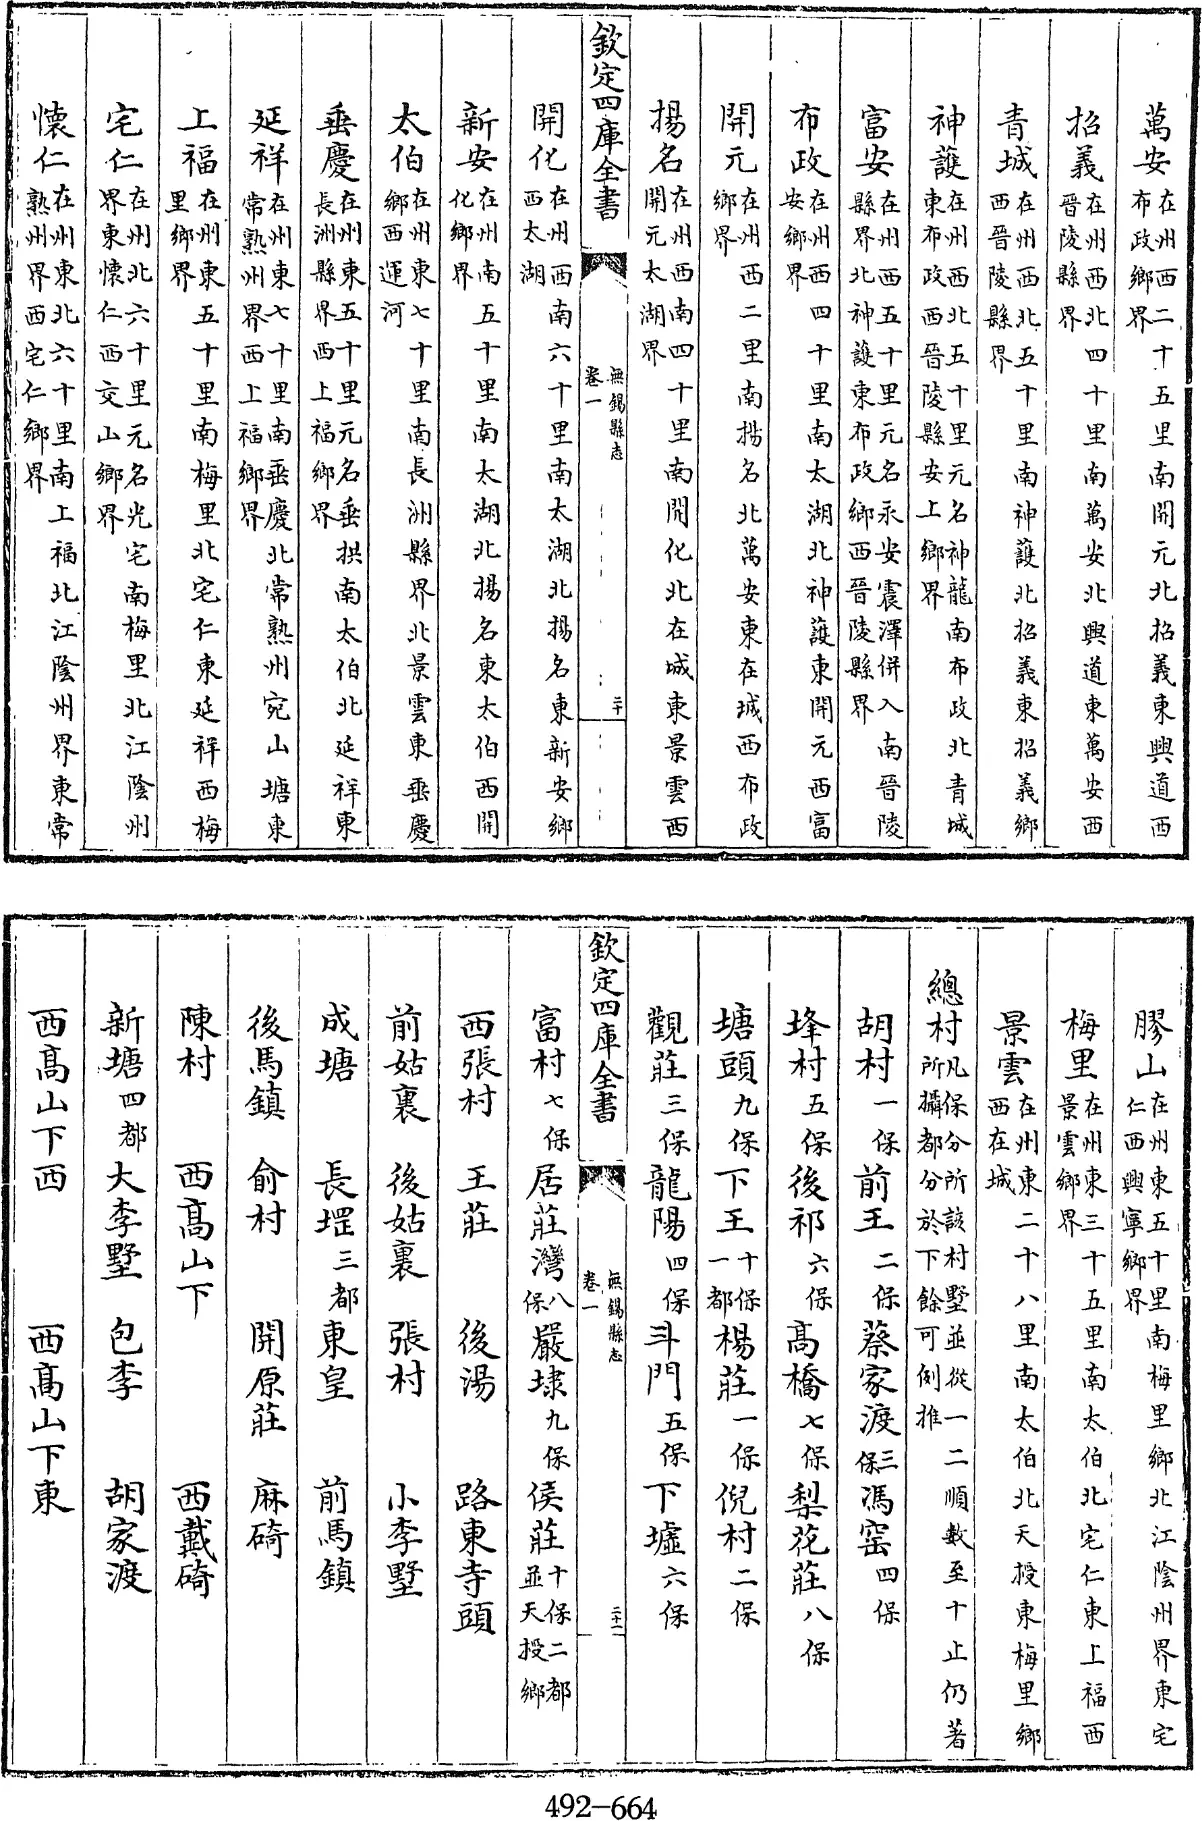 萬安在州西二十五里南開元北招義東興道西布政鄉界
招義在州西北四十里南萬安北興道東萬安西晉陵縣界
青城在州西北五十里南神護北招義東招義鄉西晉陵縣界
神護在州西北五十里元名神龍南布政北青城東布政西晉陵縣安上鄉界
富安在州西五十里元名永安震澤併入南晉陵縣界北神護東布政鄉西晉陵縣界
布政在州西四十里南太湖北神護東開元西富安鄉界
開元在州西二里南揚名北萬安東在城西布政鄉界
揚名在州西南四十里南開化北在城東景雲西開元太湖界
欽定四庫全書
無錫縣志
卷一
二十
開化在州西南六十里南太湖北揚名東新安鄉西太湖
新安在州南五十里南太湖北揚名東太伯西開化鄉界
太伯在州東七十里南長洲縣界北景雲東垂慶鄉西運河
垂慶在州東五十里元名垂拱南太伯北延祥東長洲縣界西上福鄉界
延祥在州東七十里南垂慶北常熟州宛山塘東常熟州界西上福鄉界
上福在州東五十里南梅里北宅仁東延祥西梅里鄉界
宅仁在州北六十里元名光宅南梅里北江陰州界東懷仁西交山鄉界
懷仁在州東北六十里南上福北江陰州界東常熟州界西宅仁鄉界
膠山在州東五十里南梅里鄉北江陰州界東宅仁西興寧鄉界
梅里在州東三十五里南太伯北宅仁東上福西景雲鄉界
景雲在州東二十八里南太伯北天授東梅里鄉西在城
總村凡保分所該村墅並從一二順數至十止仍著所攝都分於下餘可例推
胡村一保 前王二保 蔡家渡三保 馮窑四保
埄村五保 後祁六保 高橋七保 梨花莊八保
塘頭九保 下王十保一都 楊莊一保 倪村二保
觀莊三保 龍陽四保 斗門五保 下墟六保
欽定四庫全書
無錫縣志
卷一
二十一
富村七保 居莊灣八保 嚴埭九保 侯莊十保二都並天授鄉
西張村 王莊 後湯 路東寺頭
前姑裏 後姑裏 張村 小李墅
成塘 長堽三都 東皇 前馬鎮
後馬鎮 俞村 開原莊 麻碕
陳村 西高山下 西戴碕
新塘四都 大李墅 包李 胡家渡
西高山下西 西高山下東
492-664